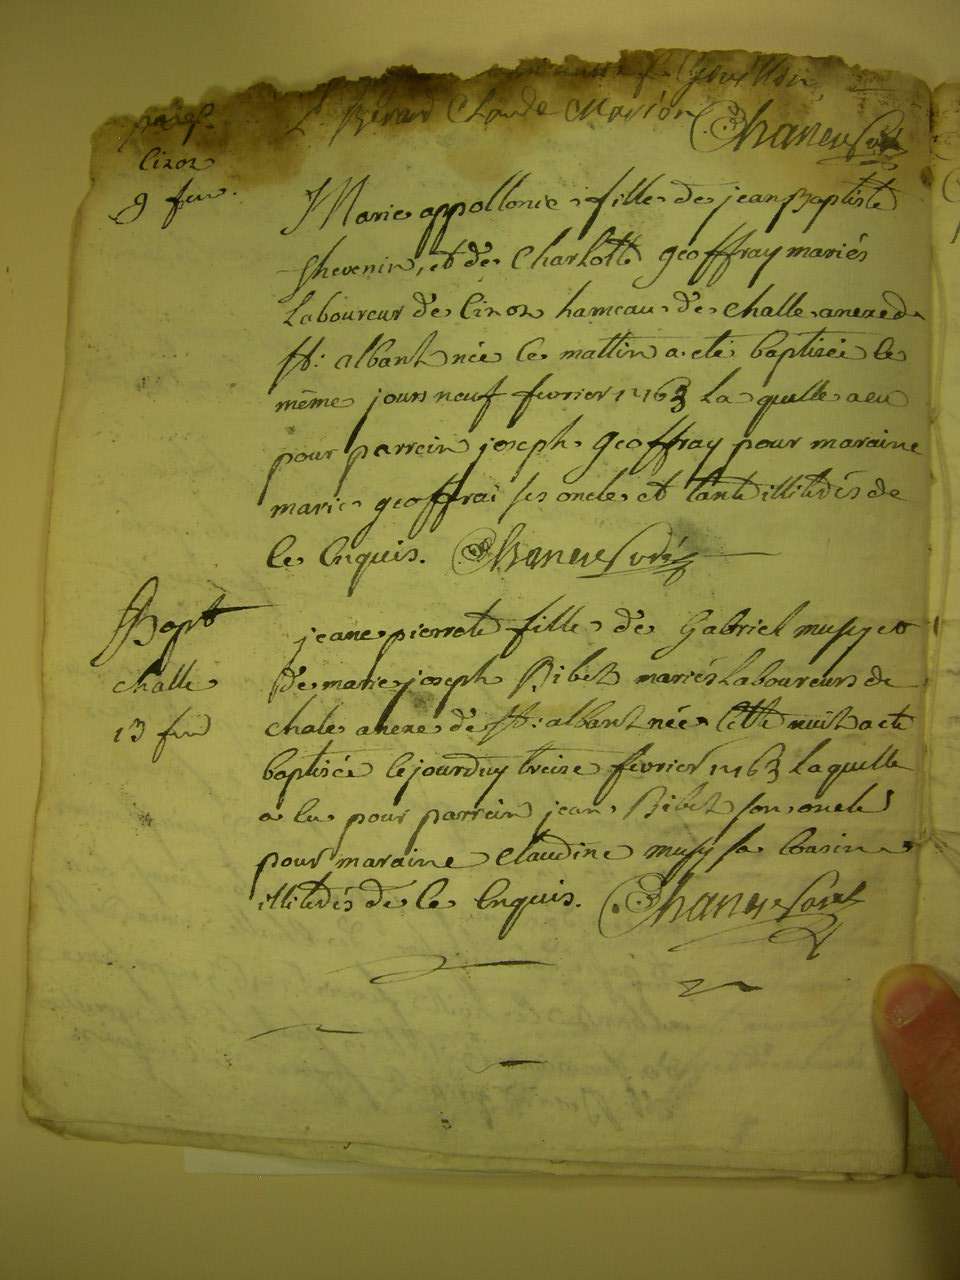 L. Berard Claude Marion
Chaneu
Cizoz
9 fev.
Marie appollonie fille de jean Baptiste
thevenin, et de Charlotte geoffray mariés
Laboureur de Cizoz hameau de challe anexe de
St: albant née le mattin a eté baptizée le
même jours neuf fevrier 1763 La quelle a eu
pour parrein joseph geoffray pour maraine
marie geoffrai ses oncle et tante illiterés de
ce Enquis. Curé
Bapt
challe
13 fev
jeane pierrote fille de Gabriel musy et
de marie joseph Ribet mariés Laboureurs de
chale anexe de St: albant née cette nuit a eté
baptisée le jourduy treize fevrier 1763 Laquelle
a Eu pour parrein jean Ribet son oncle
pour maraine Claudine musy sa
illiterés de ce Enquis.